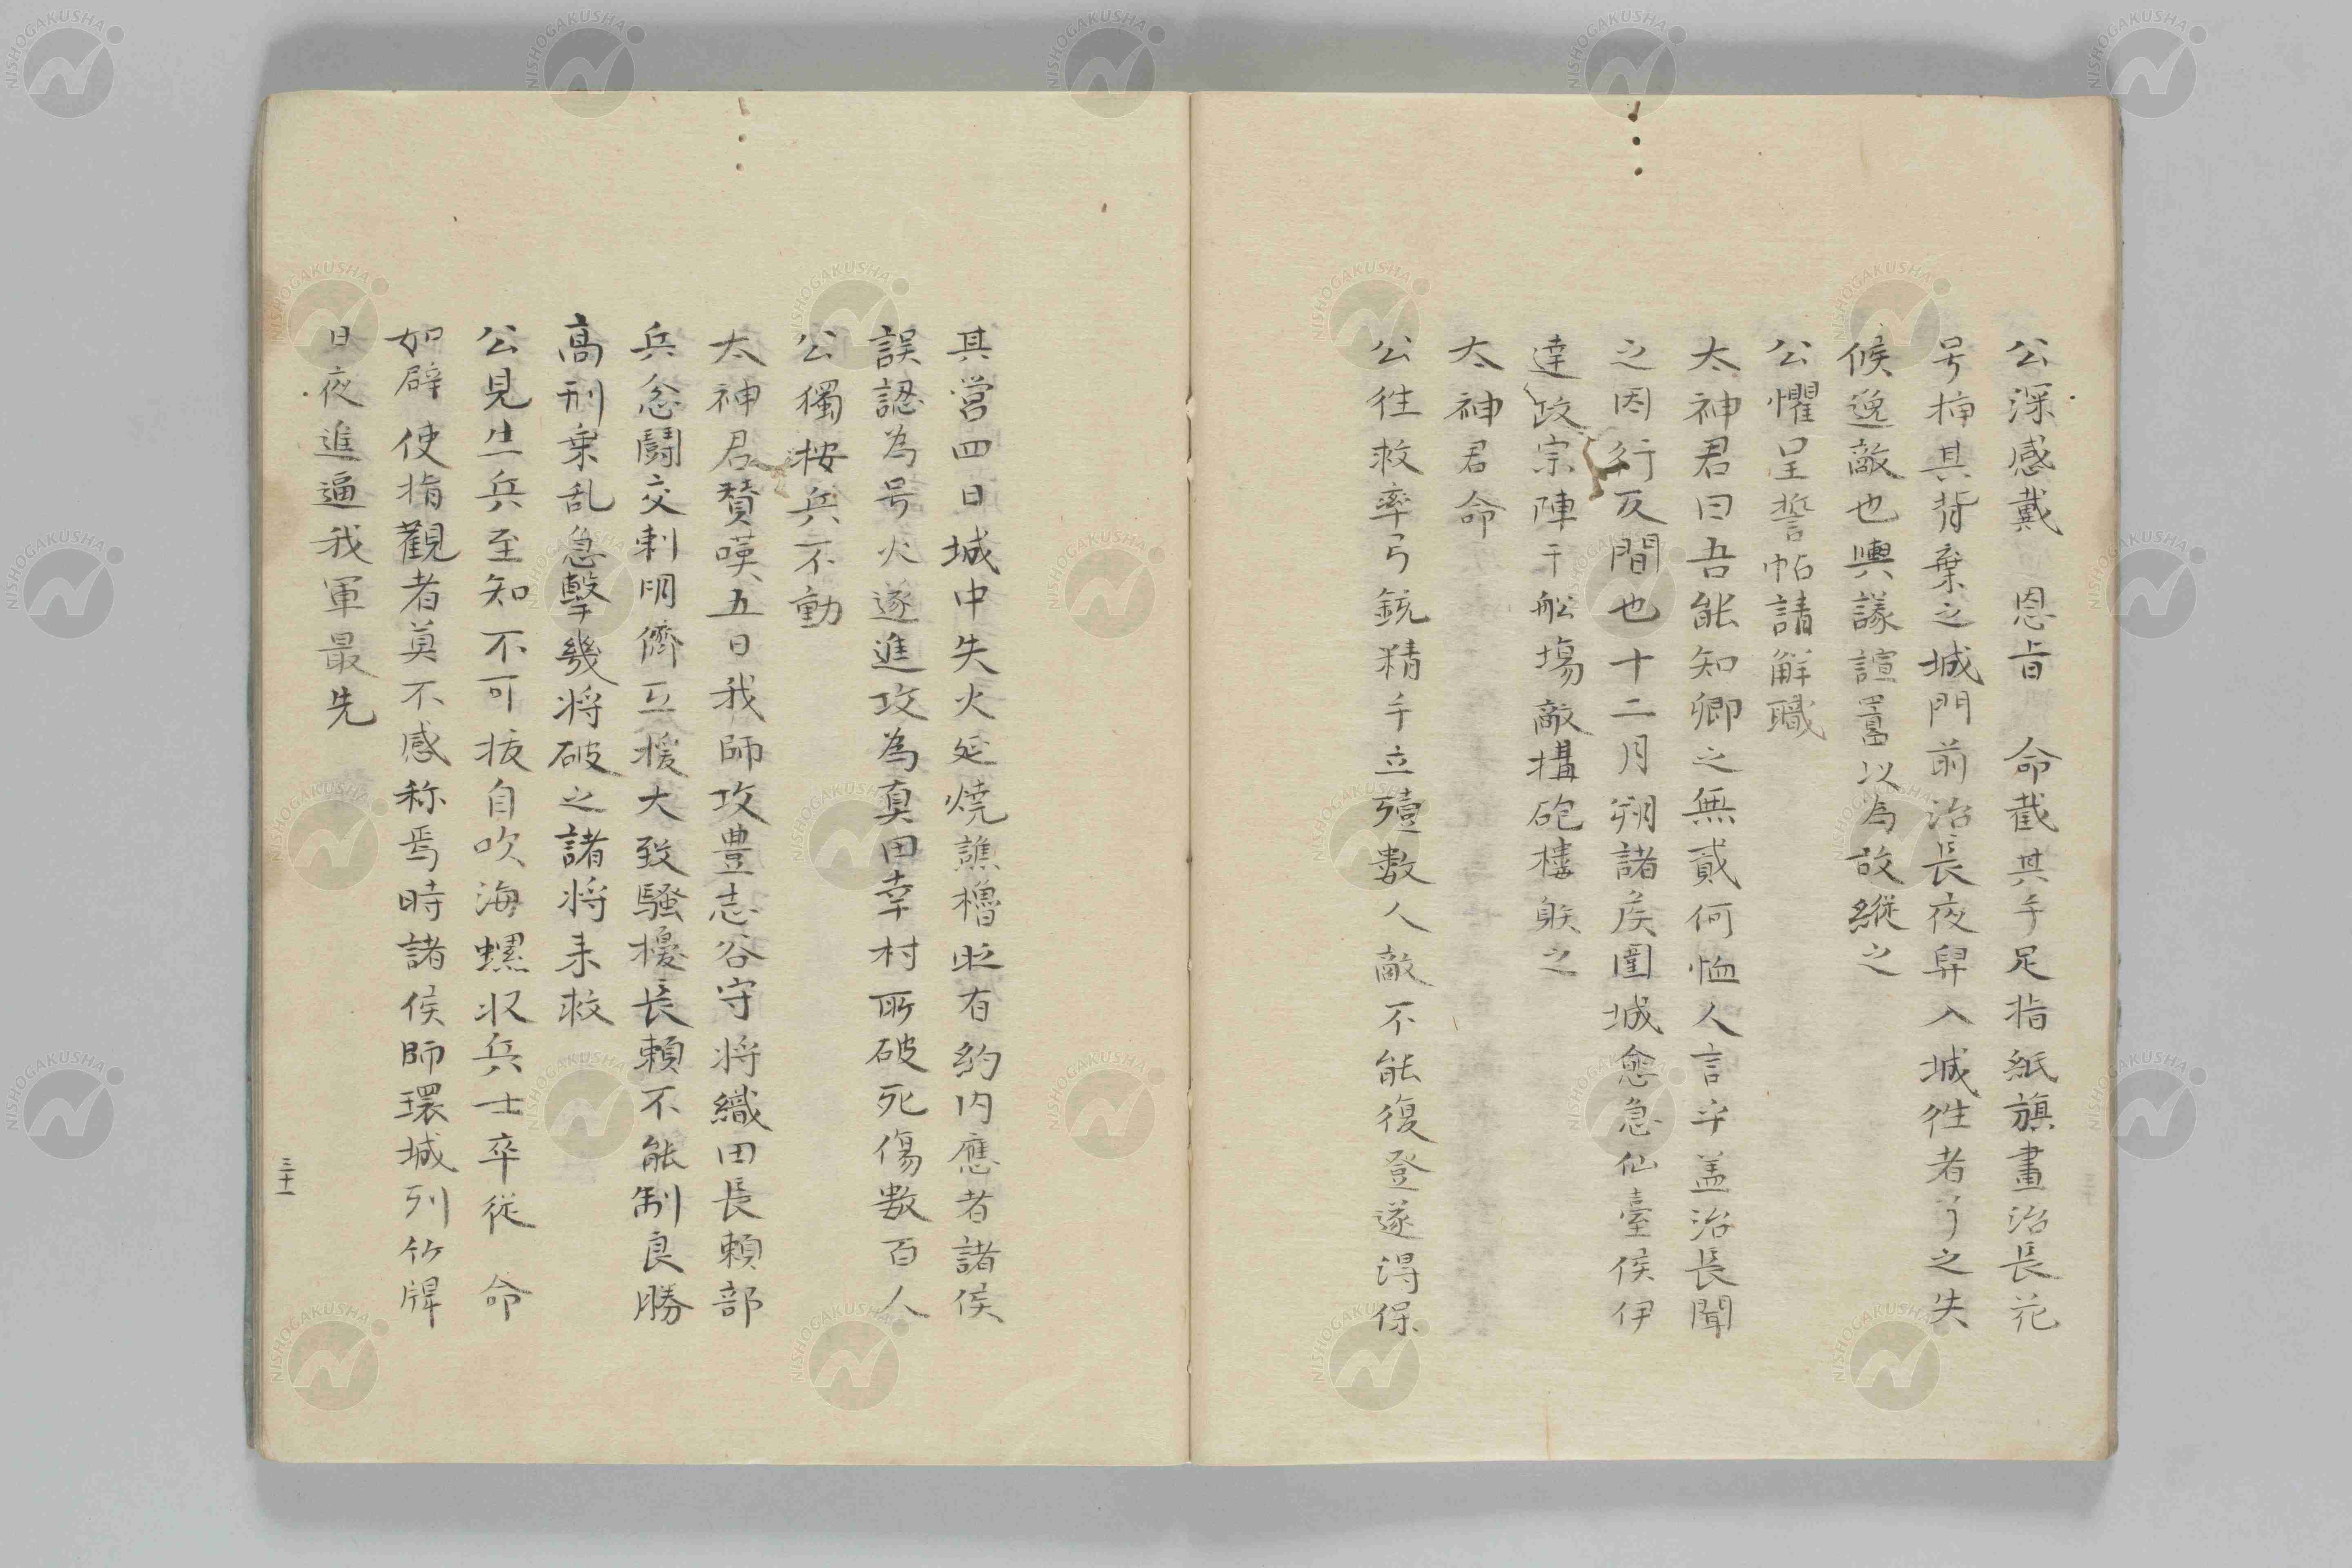 公深感戴　恩旨　命截其手足指紙旗畫治長花
号挿其背棄之城門前治長夜舁入城徃者亍之失
候逸敵也輿議諠置以為故縱之
公懼呈誓帖請解職
太神君曰吾能知卿之無貳何恤人言乎盖治長聞
之因行反間也十二月朔諸侯圍城愈急仙臺侯伊
達政宗陣于舩塲敵搆砲樓躲之
太神君命
公徃救率弓銃精手立殪数人敵不能復登遂淂保
其營四日城中失火延燒譙櫓㫄有約内應者諸侯
誤認為号火遂進攻為真田幸村所破死傷数百人
公獨按兵不動
太神君賛嘆五日我師攻豊志谷守将織田長頼部
兵忿鬪交剌明儕互援大致騒擾長頼不能制良勝
高刑乗乱急擊幾将破之諸将来救
公見生兵至知不可拔自吹海螺収兵士卒従　命
如臂使指觀者莫不感称焉時諸侯師環城列竹牌
日夜進逼我軍最先
三十一